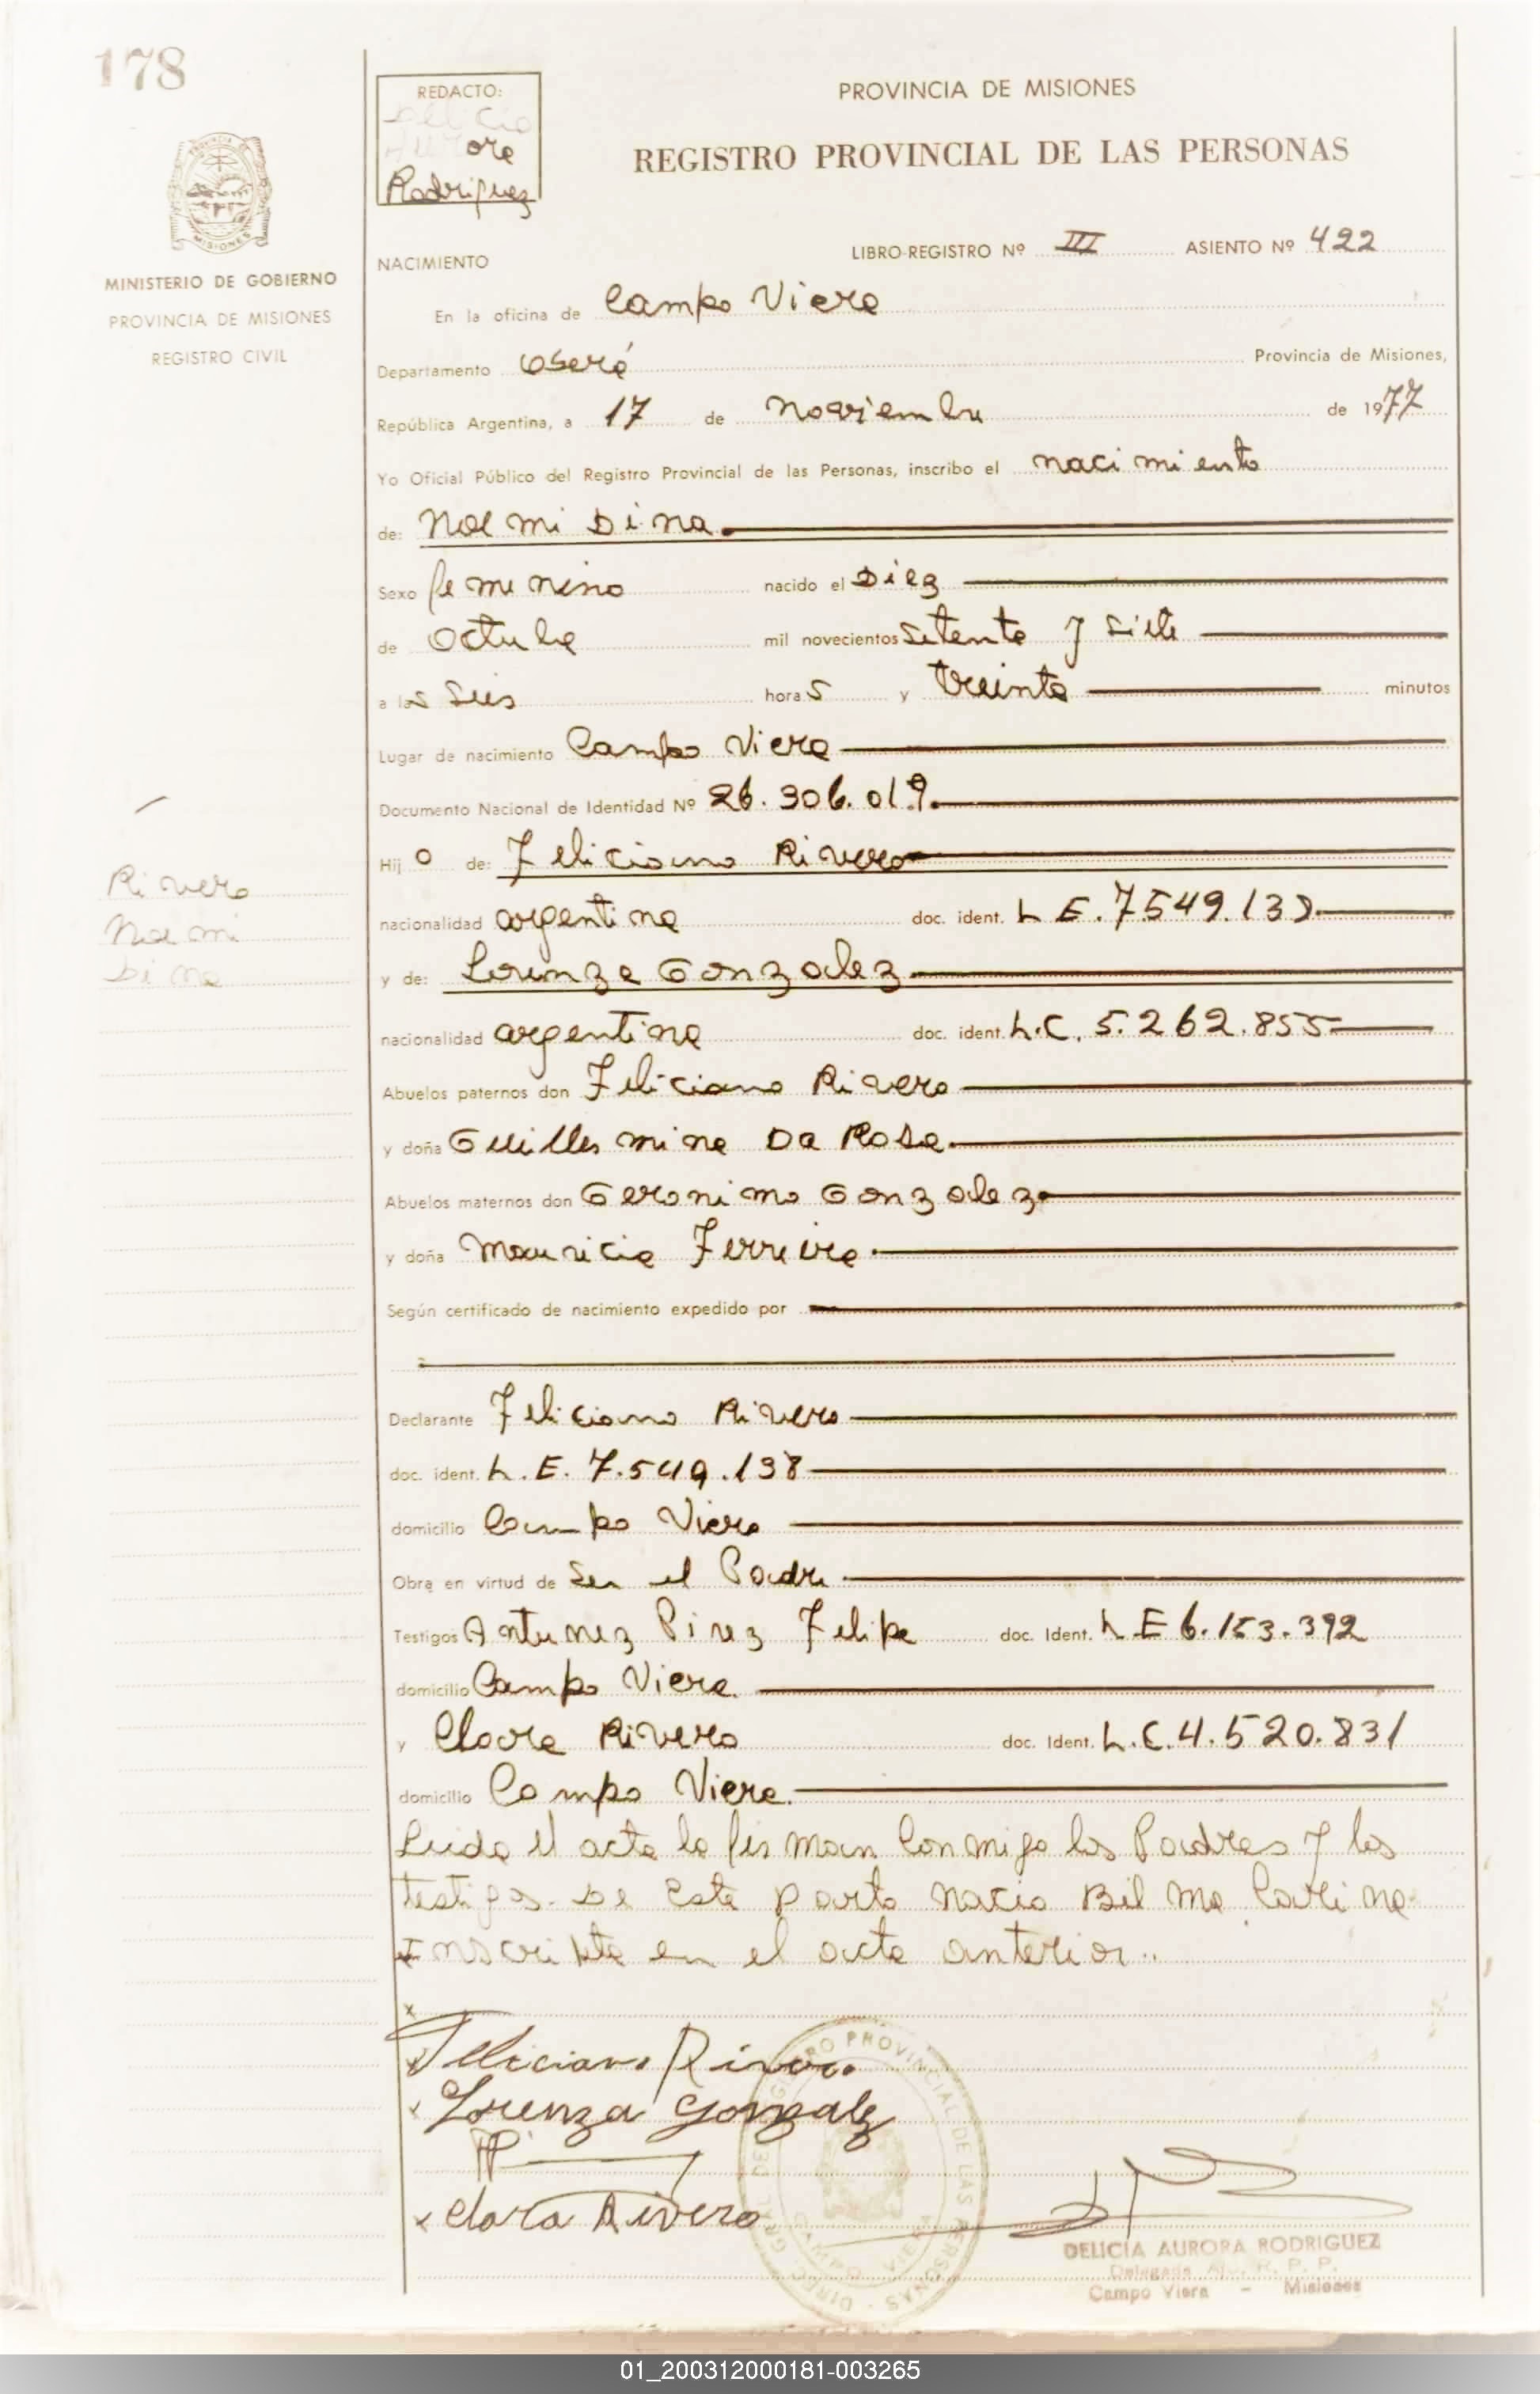 178
REDACTO:
Delicia
Aurora
Rodriguez
PROVINCIA DE MISIONES
REGISTRO PROVINCIAL DE LAS PERSONAS
MINISTERIO DE GOBIERNO
PROVINCIA DE MISIONES
REGISTRO CIVIL
NACIMIENTO
LIBRO-REGISTRO Nº III ASIENTO Nº 422
En la oficina de Campo Viera
Departamento Oberá Provincia de Misiones,
República Argentina, a 17 de Noviembre de 1977
Yo Oficial Público del Registro Provincial de las Personas, inscribo el nacimiento
de: Noemi Dina
Sexo femenino nacido el Diez
de Octubre mil novecientos setenta y siete
a las seis horas y treinta minutos
Lugar de nacimiento Campo Viera
Documento Nacional de Identidad Nº 26.306.019.
Hijo de: Feliciano Rivero
nacionalidad argentina doc. ident. L E. 7549.138
y de: Lorenza Gonzalez
nacionalidad argentina doc. ident. L.C. 5.262.855
Abuelos paternos don Feliciano Rivero
y doña Guillermina Da Rosa
Abuelos maternos don Geronimo Gonzalez
y doña Mauricia Ferreira
Según certificado de nacimiento expedido por
Declarante Feliciano Rivero
doc. ident. L.E. 7.549.138
domicilio Campo Viera
Obra en virtud de Ser el Padre
Testigos Antunez Pirez Felipe doc. Ident. L E 6.153.392
domicilio Campo Viera
y Clara Rivero doc. Ident. L.C. 4.520.831
domicilio Campo Viera
Leida el acta la firman conmigo los Padres y los
testigos. De este parto nacio Bilma Carina
Inscripta en el acta anterior..
Rivero
Noemi
Dina
Feliciano Rivero
Lorenza Gonzalez
Clara Rivero
DELICIA AURORA RODRIGUEZ
Delegada R. P. P.
Campo Viera - Misiones
01_200312000181-003265